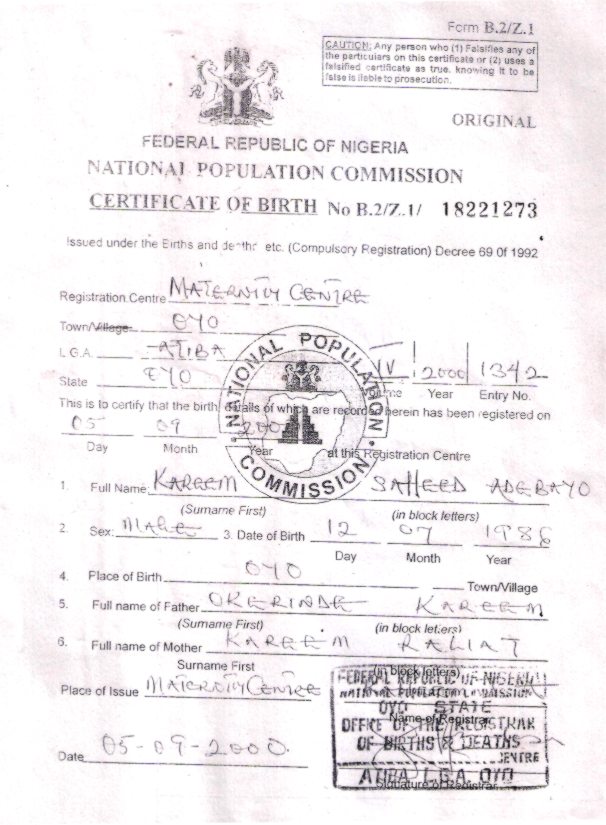 Form B.2/Z.1
CAUTION: Any person who (1) Falsifies any of
the particulars on this certificate or (2) uses a
falsified certificate as true, knowing it to be
false is liable to prosecution.
ORIGINAL
FEDERAL REPUBLIC OF NIGERIA
NATIONAL POPULATION COMMISSION
CERTIFICATE OF BIRTH No B.2/Z.1/ 18221273
Issued under the Births and deaths etc. (Compulsory Registration) Decree 69 0f 1992
Registration Centre MATERNITY CENTRE
Town/Village OYO
L.G.A. ATIBA
IV 2000 1342
State OYO
Year Entry No.
This is to certify that the birth details of which are recorded herein has been registered on
05 09 200
Day Month Year at this Registration Centre
NATIONAL POPULATION COMMISSION
1. Full Name KAREEM SAHEED ADEBAYO
(Surname First) (in block letters)
2. Sex: MALE 3. Date of Birth 12 07 1986
Day Month Year
4. Place of Birth OYO Town/Village
5. Full name of Father OKERINDE KAREEM
(Surname First) (in block letters)
6. Full name of Mother KAREEM RALIAT
Surname First (in block letters)
Place of Issue MATERNITY CENTRE
FEDERAL REPUBLIC OF NIGERIA
NATIONAL POPULATION COMMISSION
OYO STATE
Name of Registrar
OFFICE OF THE REGISTRAR
OF BIRTHS & DEATHS
CENTRE
Date 05-09-2000
ATIBA L.G.A OYO
Signature of Registrar